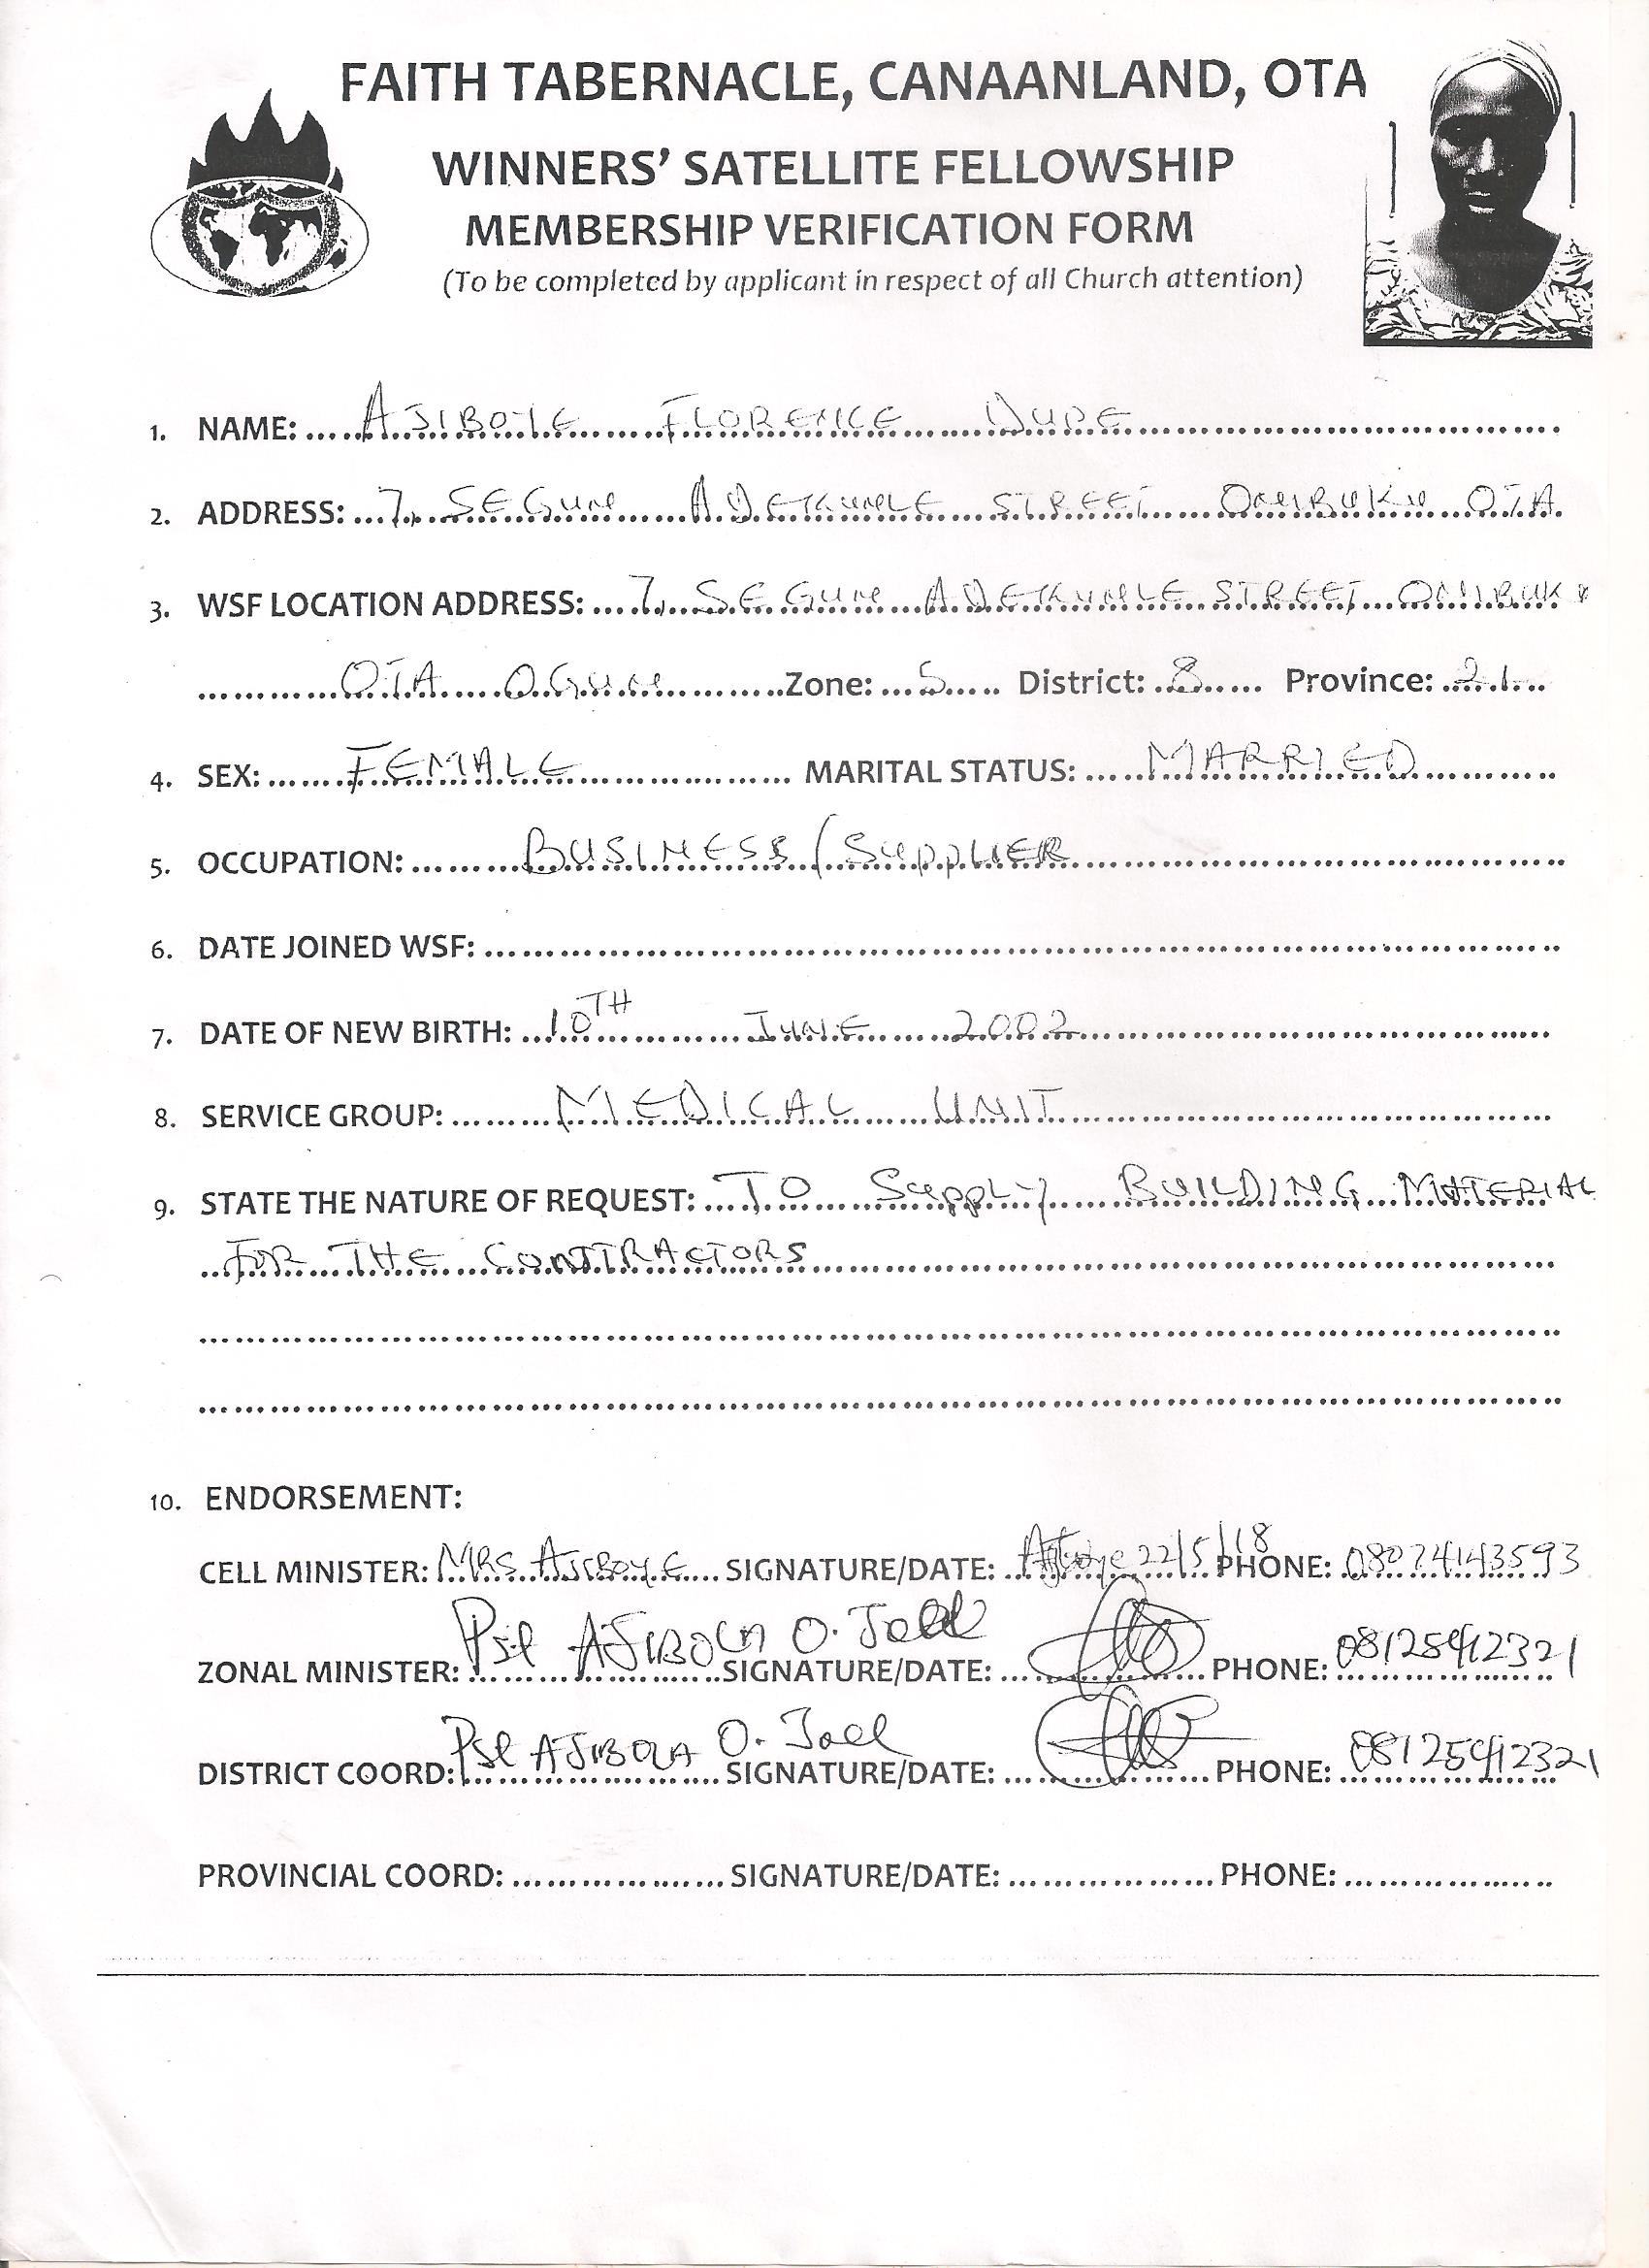 FAITH TABERNACLE, CANAANLAND, OTA
WINNERS' SATELLITE FELLOWSHIP
MEMBERSHIP VERIFICATION FORM
(To be completed by applicant in respect of all Church attention)
1. NAME: AJIBOYE FLORENCE DUPE
2. ADDRESS: 7, SEGUN ADEKUNLE STREET ONIBUKU OTA
3. WSF LOCATION ADDRESS: 7, SEGUN ADEKUNLE STREET, ONIBUKU
OTA OGUN Zone: 5 District: 8 Province: 21
4. SEX: FEMALE MARITAL STATUS: MARRIED
5. OCCUPATION: BUSINESS/SUPPLIER
6. DATE JOINED WSF:
7. DATE OF NEW BIRTH: 10TH JUNE 2002
8. SERVICE GROUP: MEDICAL UNIT
9. STATE THE NATURE OF REQUEST: TO SUPPLY BUILDING MATERIAL
FOR THE CONTRACTORS
10. ENDORSEMENT:
CELL MINISTER: MRS AJIBOYE SIGNATURE/DATE: 22/5/18 PHONE: 08074143593
ZONAL MINISTER: AJIBOLA O. Joel SIGNATURE/DATE: PHONE: 08125912321
DISTRICT COORD: AJIBOLA O. Joel SIGNATURE/DATE: PHONE: 08125912321
PROVINCIAL COORD: SIGNATURE/DATE: PHONE: